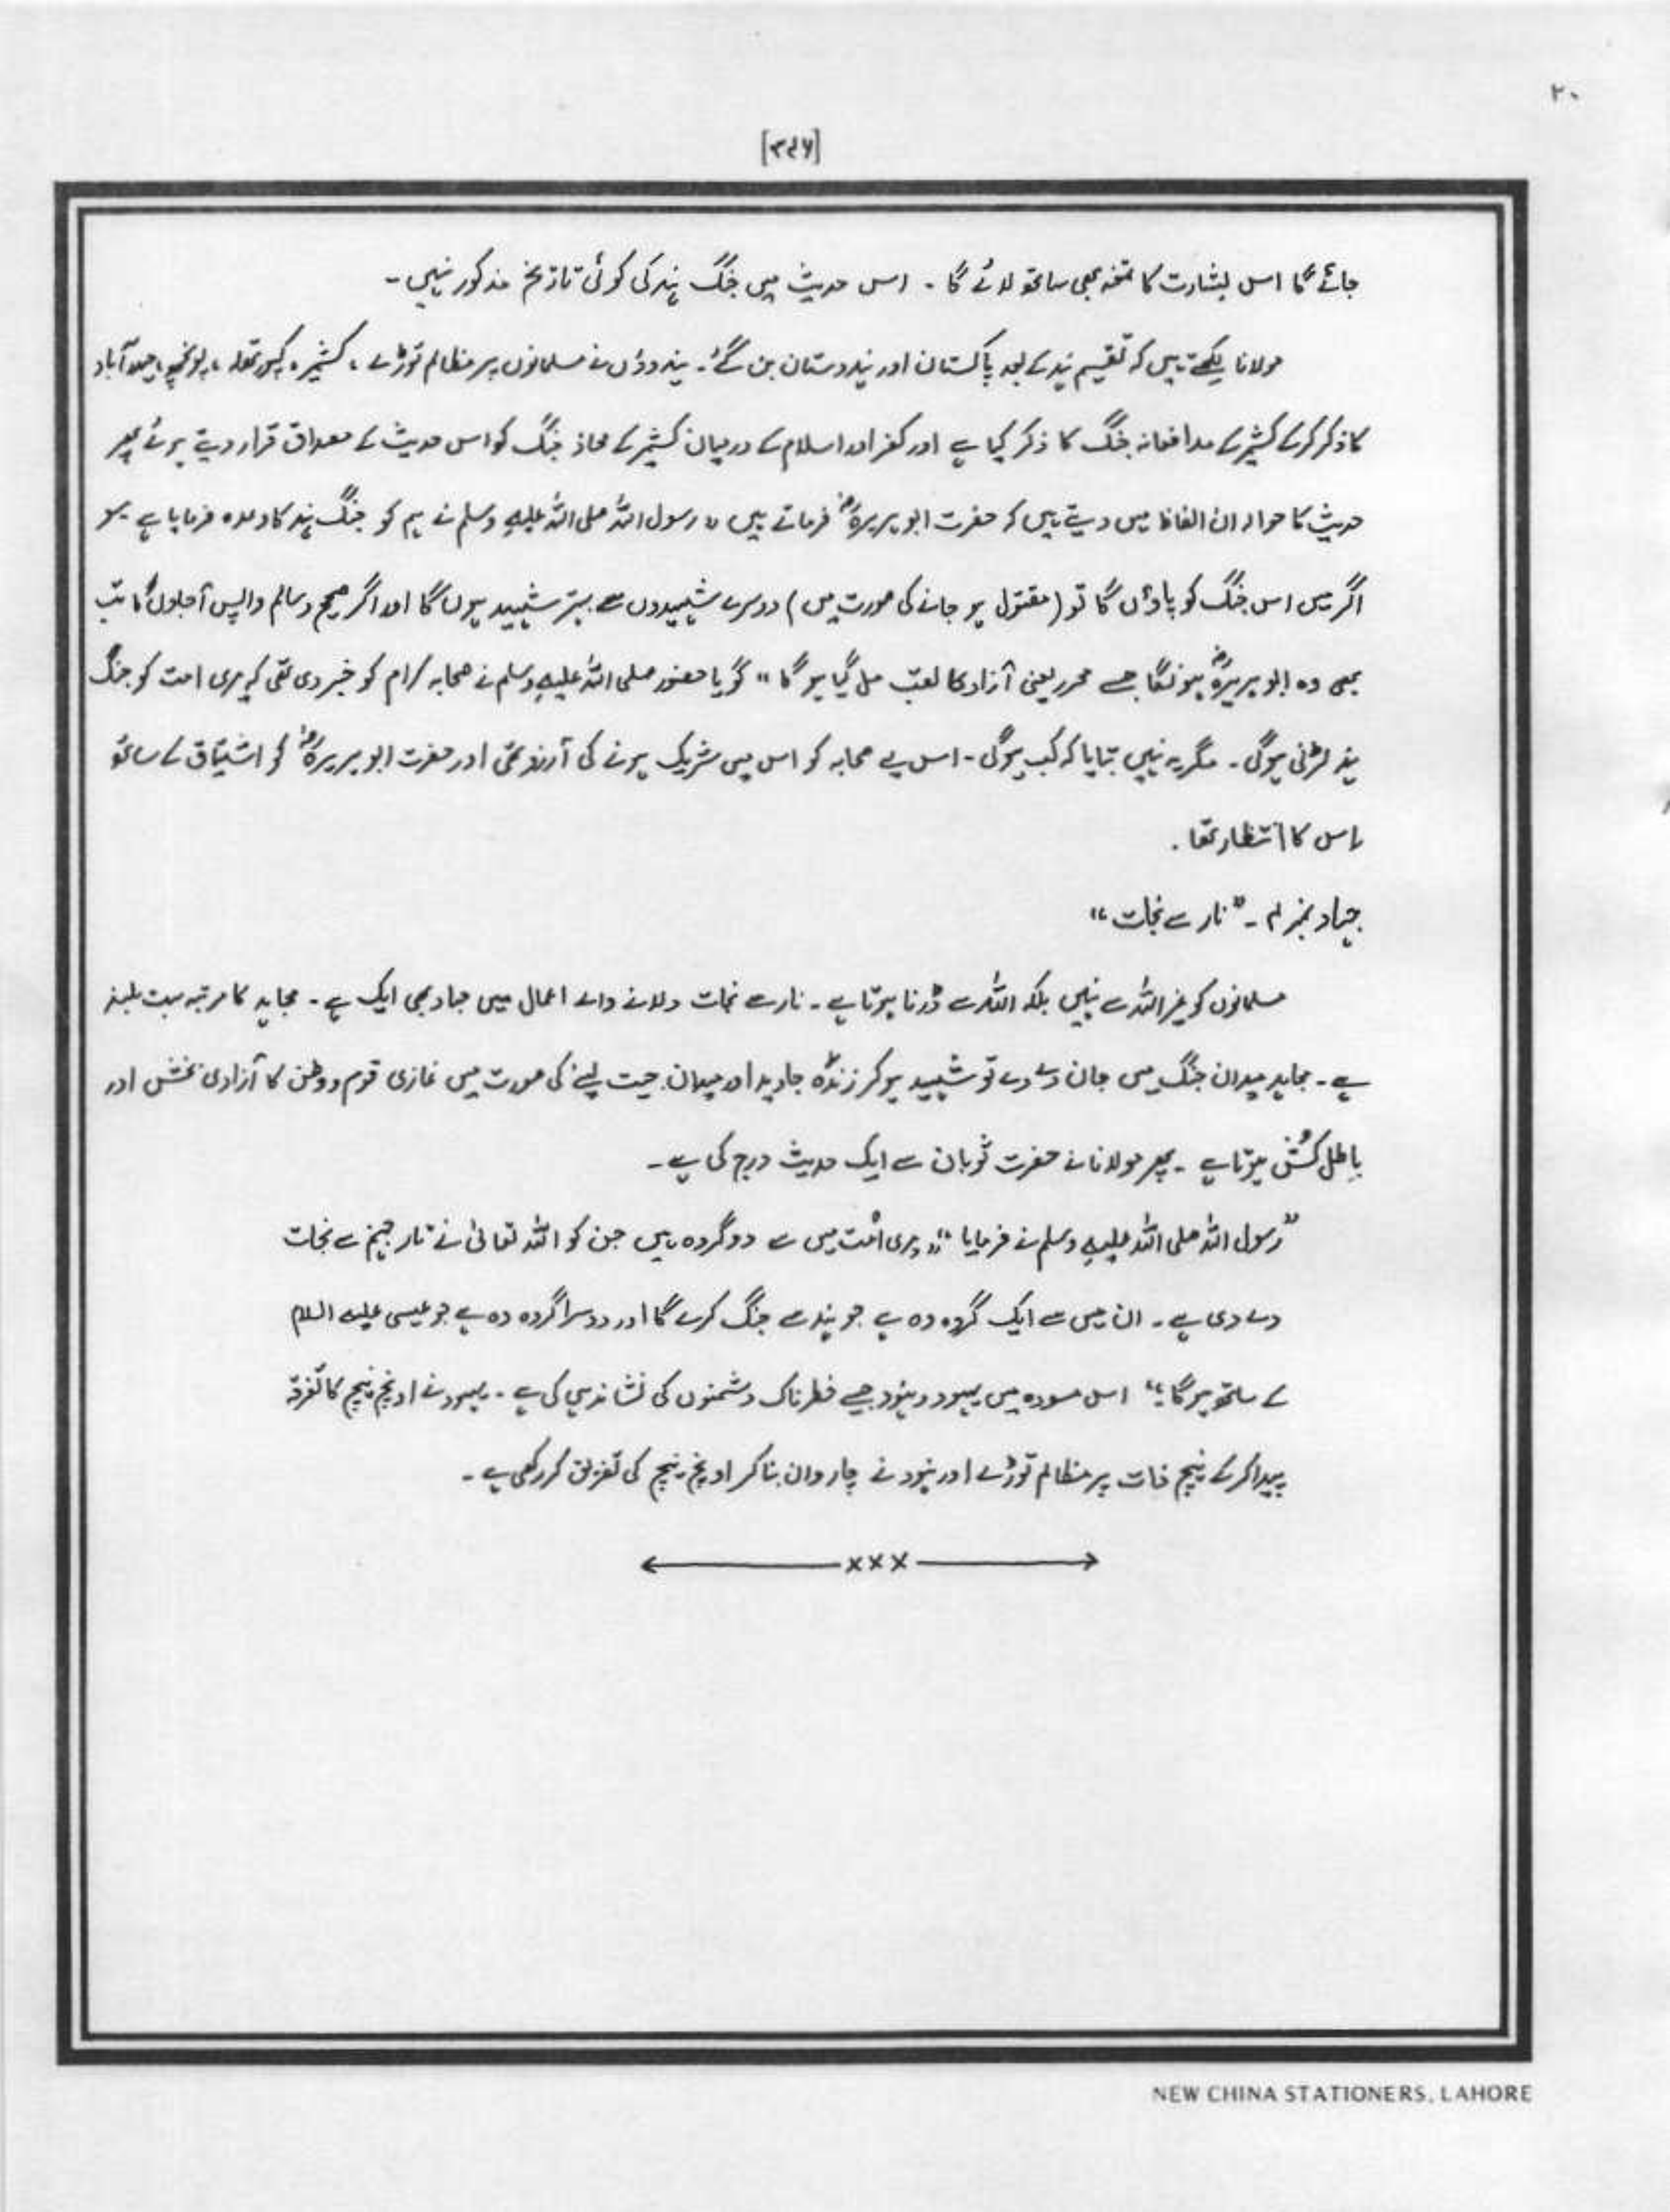 ۲۰
[۳۷۶]
جائے گا اس بشارت کا تمغہ بھی ساتھ لائے گا ۔ اس حدیث میں جنگ ہند کی کوئی تاریخ مذکور نہیں ۔
مولانا لکھتے ہیں کہ تقسیم ہند کے بعد پاکستان اور ہندوستان بن گئے ۔ ہندوؤں نے مسلمانوں پر مظالم توڑے ، کشمیر ، کپورتھلہ ، پونچھ ، حیدرآباد
کا ذکر کر کے کشمیر کے مدافعانہ جنگ کا ذکر کیا ہے اور کفر اور اسلام کے درمیان کشمیر کے محاذ جنگ کو اس حدیث کے مصداق قرار دیتے ہوئے پھر
حدیث کا حوالہ ان الفاظ میں دیتے ہیں کہ حضرت ابو ہریرہؓ فرماتے ہیں " رسول اللہ صلی اللہ علیہ وسلم نے ہم کو جنگ ہند کا وعدہ فرمایا ہے ۔ سو
اگر میں اس جنگ کو پاؤں گا تو ( مقتول ہو جانے کی صورت میں ) دوسرے شہیدوں سے بہتر شہید ہوں گا اور اگر صحیح وسالم واپس آجاوں گا تب
بھی وہ ابو ہریرہؓ ہونگا جسے محرر یعنی آزاد کا لقب مل گیا ہو گا " گویا حضور صلی اللہ علیہ وسلم نے صحابہ کرام کو خبر دی تھی کہ میری امت کو جنگ
ہند لڑنی ہوگی ۔ مگر یہ نہیں بتایا کہ کب ہوگی ۔ اس لیے صحابہ کو اس میں شریک ہونے کی آرزو تھی اور حضرت ابو ہریرہؓ کو اشتیاق کے ساتھ
اس کا انتظار تھا ۔
جہاد نمبر ۴ ۔ " نار سے نجات "
مسلمانوں کو غیر اللہ سے نہیں بلکہ اللہ سے ڈرنا ہوتا ہے ۔ نار سے نجات دلانے والے اعمال میں جہاد بھی ایک ہے ۔ مجاہد کا مرتبہ بہت بلند
ہے ۔ مجاہد میدان جنگ میں جان دے دے تو شہید ہو کر زندہ جاوید اور میدان جیت لینے کی صورت میں غازی قوم و وطن کا آزادی بخش اور
باطل کُش ہوتا ہے ۔ پھر مولانا نے حضرت ثوبان سے ایک حدیث درج کی ہے ۔
" رسول اللہ صلی اللہ علیہ وسلم نے فرمایا " میری اُمت میں سے دو گروہ ہیں جن کو اللہ تعالیٰ نے نار جہنم سے نجات
دے دی ہے ۔ ان میں سے ایک گروہ وہ ہے جو ہند سے جنگ کرے گا اور دوسرا گروہ وہ ہے جو عیسی علیہ السلام
کے ساتھ ہو گا ۔" اس مسودہ میں یہود و ہنود جیسے خطرناک دشمنوں کی نشاندہی کی ہے ۔ یہود نے اونچ نیچ کا تفرقہ
پیدا کر کے نیچ ذات پر مظالم توڑے اور ہنود نے چار وان بنا کر اونچ نیچ کی تفریق کر رکھی ہے ۔
×××
NEW CHINA STATIONERS, LAHORE